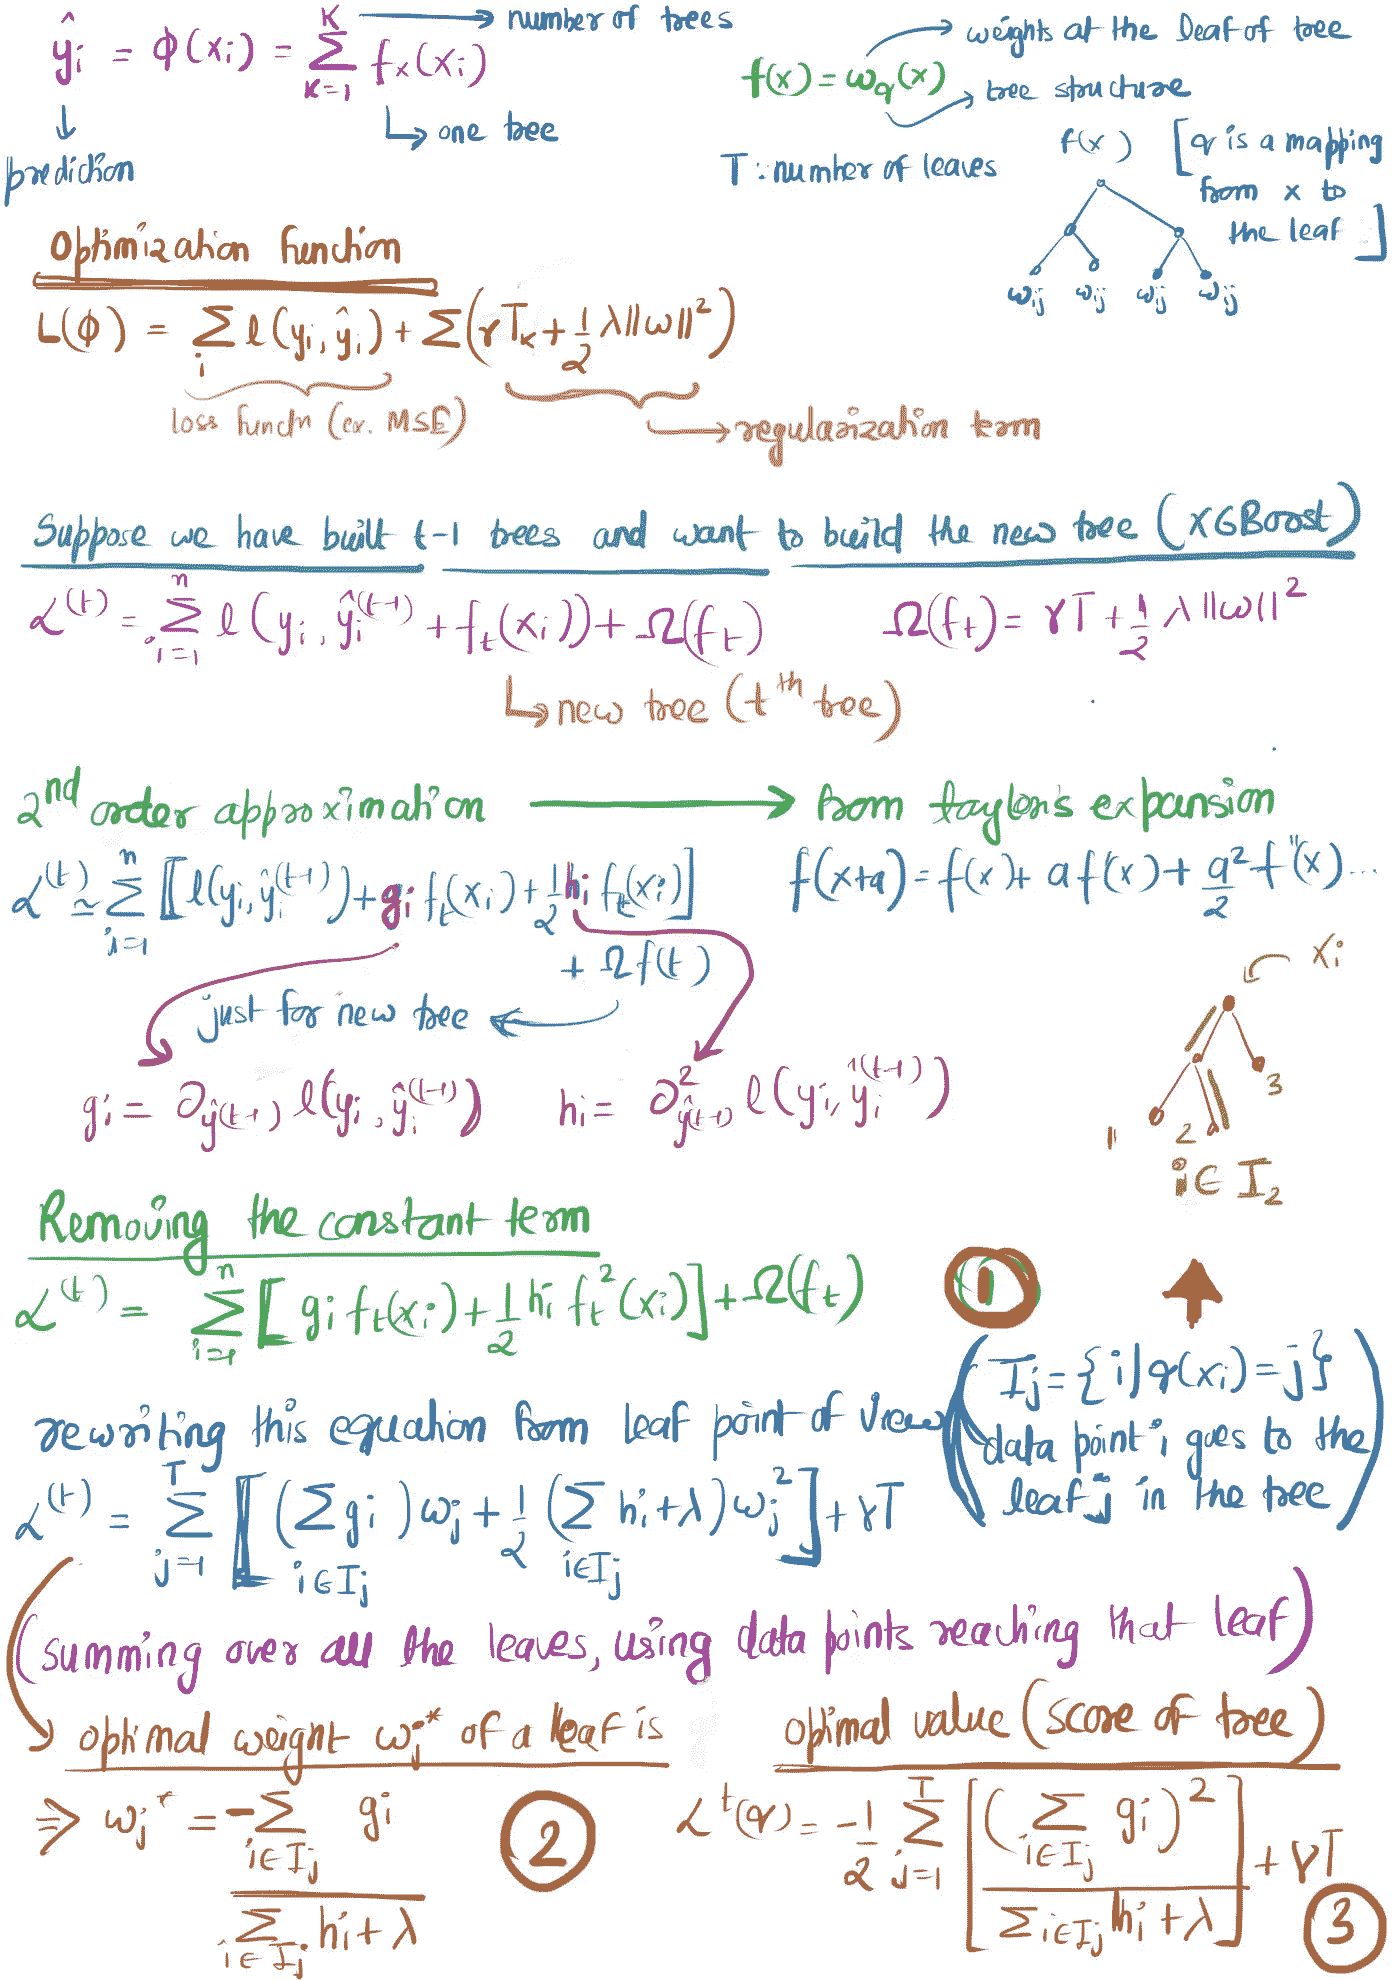 ŷᵢ = ϕ(xᵢ) = Σ_{K=1}^{K} fₓ(xᵢ) → number of trees
↳ one tree
↓ prediction
f(x) = ω_q(x) → weights at the leaf of tree
→ tree structure
T : number of leaves
f(x) [q is a mapping
from x to
the leaf]
ωᵢⱼ ωᵢⱼ ωᵢⱼ ωᵢⱼ
Optimization function
L(ϕ) = Σᵢ l(yᵢ, ŷᵢ) + Σ(γT_K + ½ λ||ω||²)
loss functn (ex. MSE) → regularization term
Suppose we have built t-1 trees and want to build the new tree (XGBoost)
ℒ^(t) = Σ_{i=1}^{n} l(yᵢ, ŷᵢ^(t-1) + f_t(xᵢ)) + Ω(f_t) Ω(f_t) = γT + ½ λ||ω||²
↳ new tree (t^th tree)
2nd order approximation → from taylor's expansion
ℒ^(t) ≃ Σ_{i=1}^{n} [l(yᵢ, ŷᵢ^(t-1)) + gᵢ f_t(xᵢ) + ½ hᵢ f_t(xᵢ)] f(x+a) = f(x) + a f'(x) + a²/2 f''(x) ...
+ Ωf(t)
just for new tree
xᵢ
gᵢ = ∂_{ŷ(t-1)} l(yᵢ, ŷᵢ^(t-1)) hᵢ = ∂²_{ŷ(t-1)} l(yᵢ, ŷᵢ^(t-1))
1 2 3
i ∈ I₂
Removing the constant term
ℒ^(t) = Σ_{i=1}^{n} [gᵢ f_t(xᵢ) + ½ hᵢ f_t²(xᵢ)] + Ω(f_t) 1
(Iⱼ = {i|q(xᵢ) = j}
data point i goes to the
leaf j in the tree)
rewriting this equation from leaf point of view
ℒ^(t) = Σ_{j=1}^{T} [(Σ_{i∈Iⱼ} gᵢ) ωⱼ + ½ (Σ_{i∈Iⱼ} hᵢ + λ) ωⱼ²] + γT
(summing over all the leaves, using data points reaching that leaf)
optimal weight ωⱼ* of a leaf is
⇒ ωⱼ* = -Σ_{i∈Iⱼ} gᵢ / Σ_{i∈Iⱼ} hᵢ + λ 2
optimal value (score of tree)
ℒ^t(q) = -½ Σ_{j=1}^{T} [(Σ_{i∈Iⱼ} gᵢ)² / Σ_{i∈Iⱼ} hᵢ + λ] + γT 3